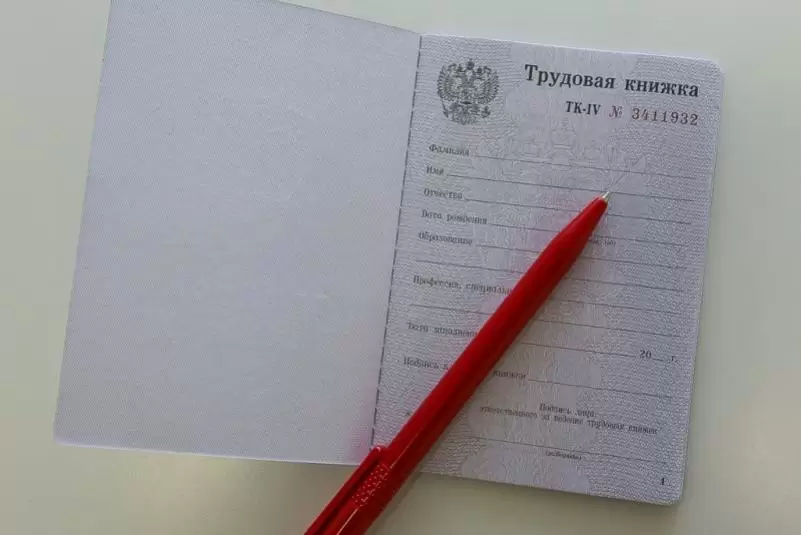 Трудовая книжка
ТК-IV № 3411932
Фамилия
Имя
Отчество
Дата рождения
Образование
Профессия,
Дата
20 г.
Подпись
книжки
Подпись лица,
ответственного за ведение трудовых книжек
(разборчиво)
1